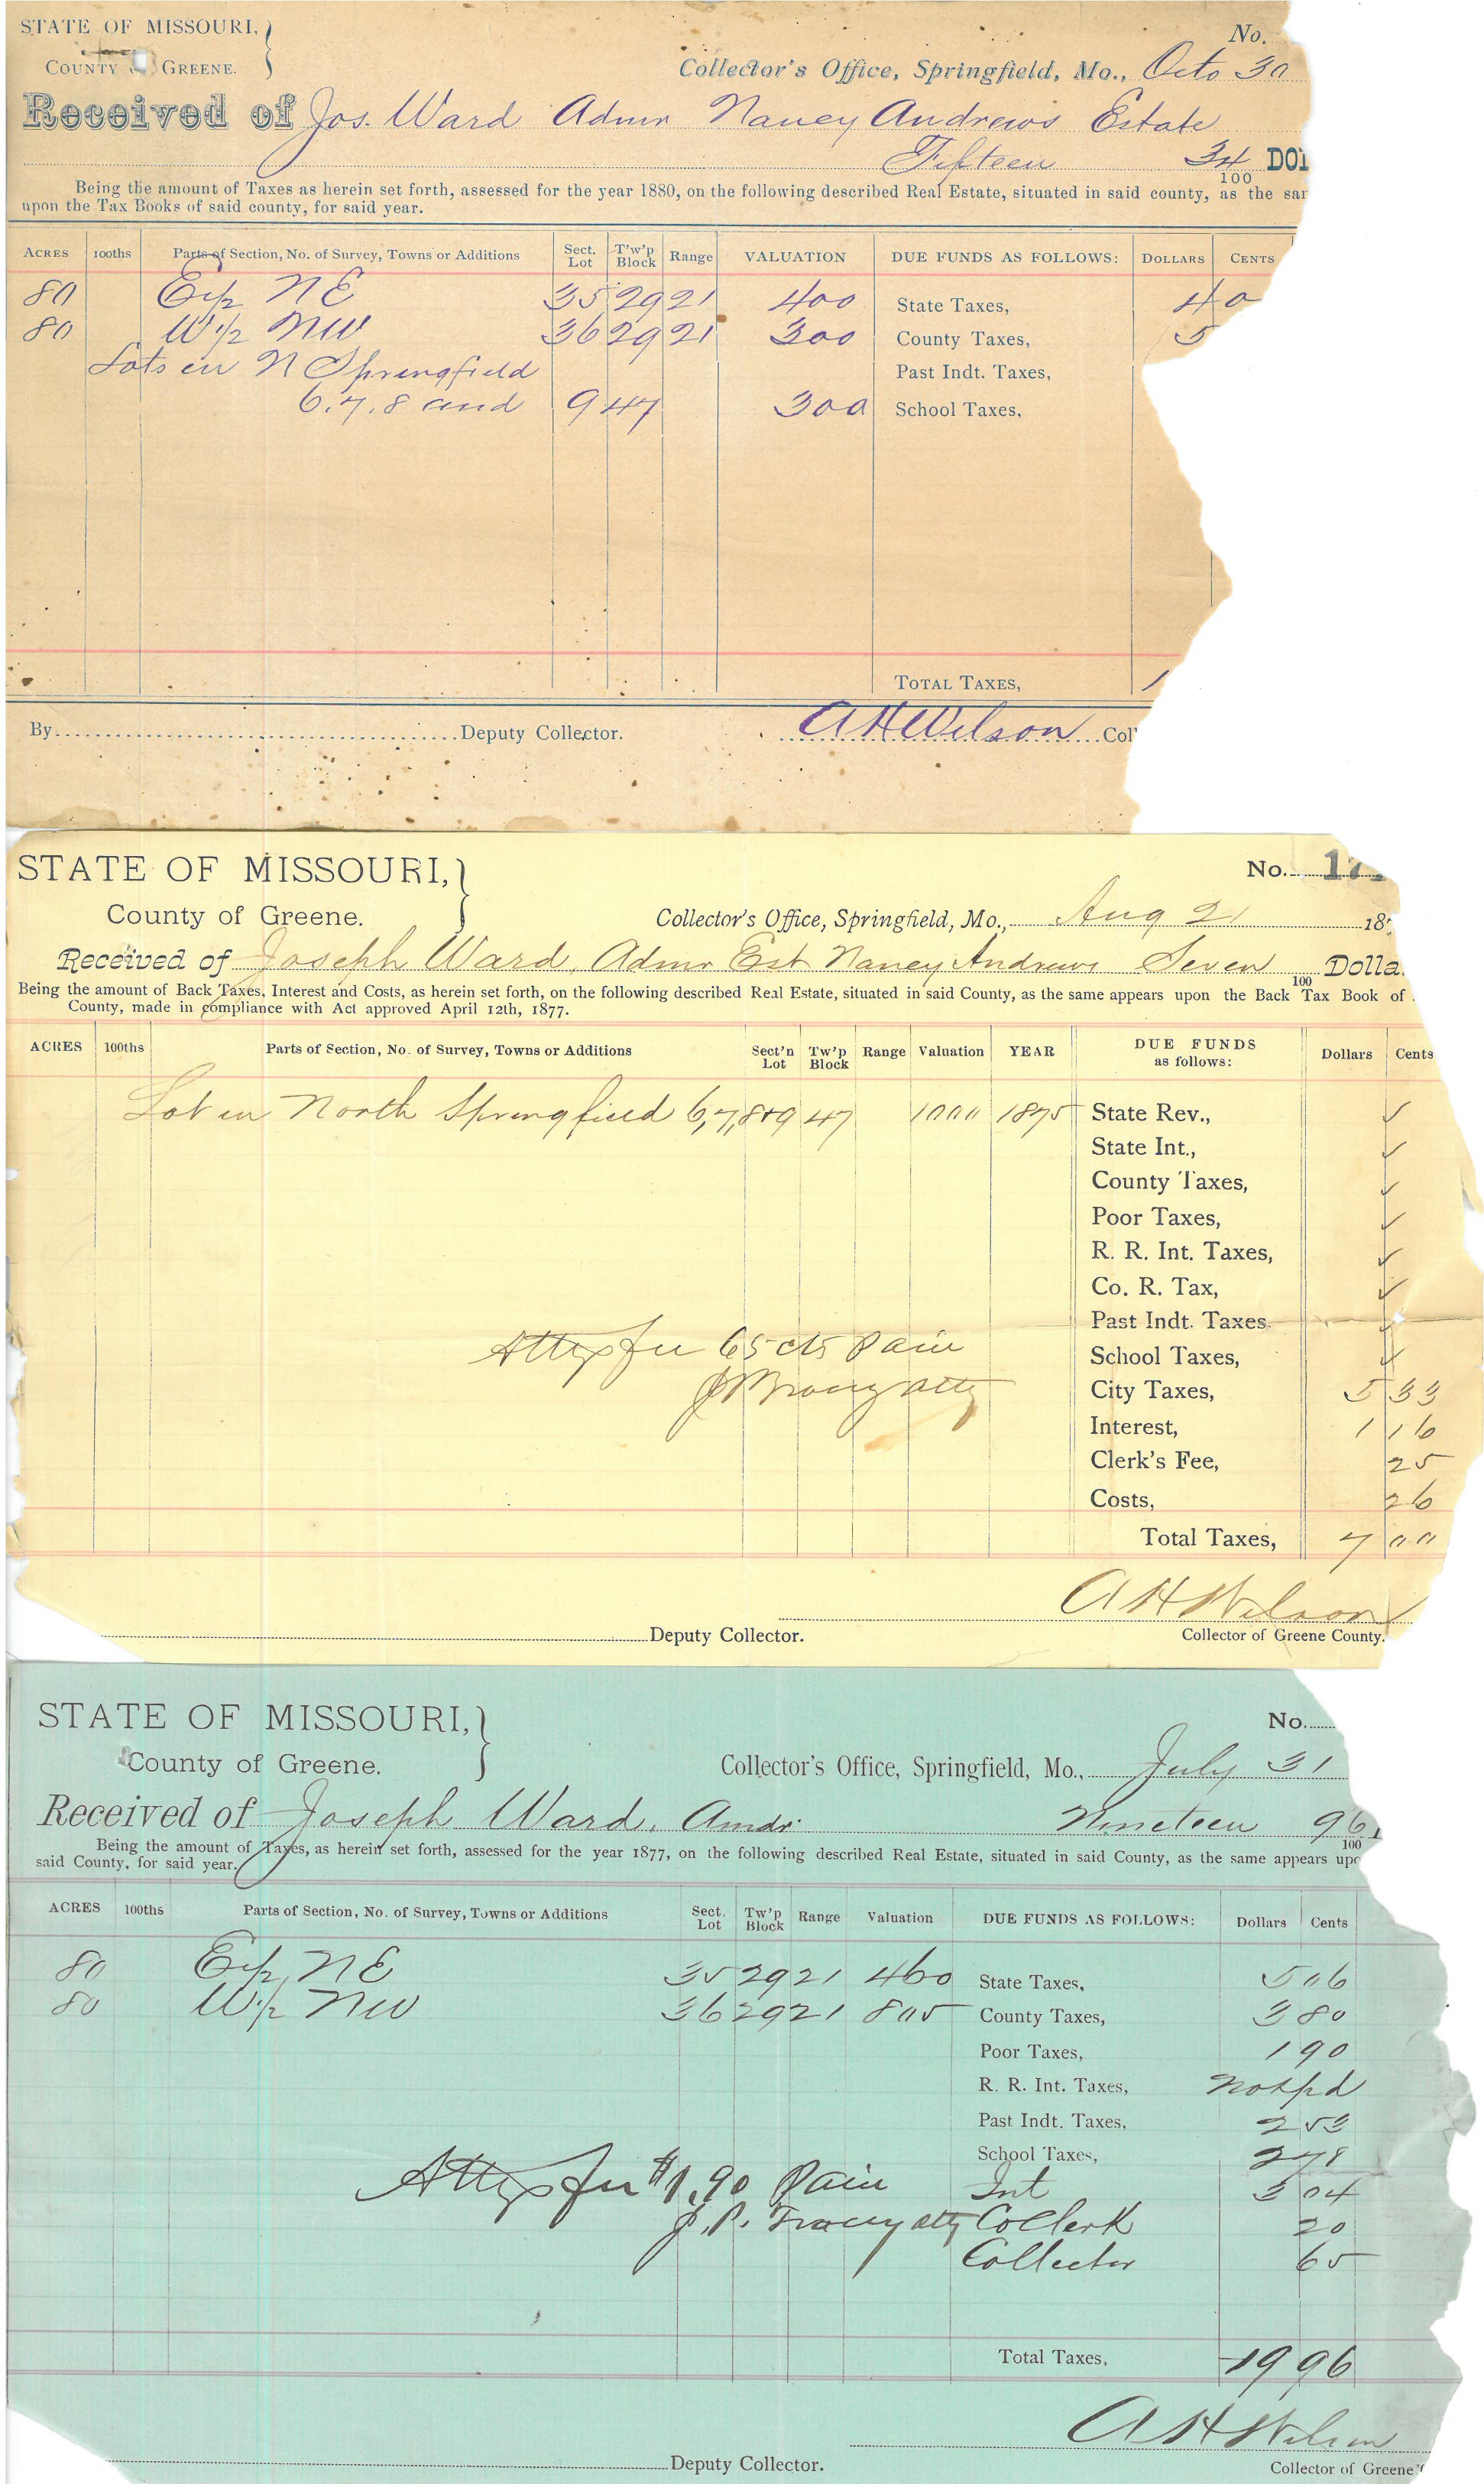 STATE OF MISSOURI, }
COUNTY GREENE.
No.
Collector's Office, Springfield, Mo., Octo 30
Received of Jos. Ward Admr Nancy Andrews Estate
Fifteen 34/100 DOL
Being the amount of Taxes as herein set forth, assessed for the year 1880, on the following described Real Estate, situated in said county, as the sa
upon the Tax Books of said county, for said year.
ACRES 100ths Parts of Section, No. of Survey, Towns or Additions Sect. Lot T'w'p Block Range VALUATION DUE FUNDS AS FOLLOWS: DOLLARS CENTS
80 E 1/2 NE 35 29 21 400 State Taxes, 4 0
80 W 1/2 NW 36 29 21 300 County Taxes, 5
Lots in N Springfield Past Indt. Taxes,
6.7.8 and 9 47 300 School Taxes,
TOTAL TAXES, 1
By Deputy Collector. A H Wilson Col
STATE OF MISSOURI, }
No. 17
County of Greene.
Collector's Office, Springfield, Mo., Aug 21 187
Received of Joseph Ward, Admr Est Nancy Andrews Seven /100 Dolla
Being the amount of Back Taxes, Interest and Costs, as herein set forth, on the following described Real Estate, situated in said County, as the same appears upon the Back Tax Book of
County, made in compliance with Act approved April 12th, 1877.
ACRES 100ths Parts of Section, No. of Survey, Towns or Additions Sect'n Lot Tw'p Block Range Valuation YEAR DUE FUNDS as follows: Dollars Cents
Lot in North Springfield 6,7,8+9 47 1000 1875 State Rev., ✓
State Int., ✓
County Taxes, ✓
Poor Taxes, ✓
R. R. Int. Taxes, ✓
Co. R. Tax, ✓
Past Indt. Taxes ✓
Attys fee 65 cts Paid School Taxes, ✓
atty City Taxes, 5 33
Interest, 1 16
Clerk's Fee, 25
Costs, 26
Total Taxes, 7 00
A H Wilson
Deputy Collector. Collector of Greene County.
STATE OF MISSOURI, }
No.
County of Greene.
Collector's Office, Springfield, Mo., July 31
Received of Joseph Ward. Amdr. Nineteen 96/100
Being the amount of Taxes, as herein set forth, assessed for the year 1877, on the following described Real Estate, situated in said County, as the same appears upo
said County, for said year.
ACRES 100ths Parts of Section, No. of Survey, Towns or Additions Sect. Lot Tw'p Block Range Valuation DUE FUNDS AS FOLLOWS: Dollars Cents
80 E 1/2 NE 35 29 21 460 State Taxes, 5 06
80 W 1/2 NW 36 29 21 805 County Taxes, 3 80
Poor Taxes, 1 90
R. R. Int. Taxes, not pd
Past Indt. Taxes, 2 53
School Taxes, 2 78
Attys fee $1.90 Paid Int 3 04
J. P. Tracey atty Co Clerk 20
Collector 65
Total Taxes, 19 96
A H Wilson
Deputy Collector. Collector of Greene